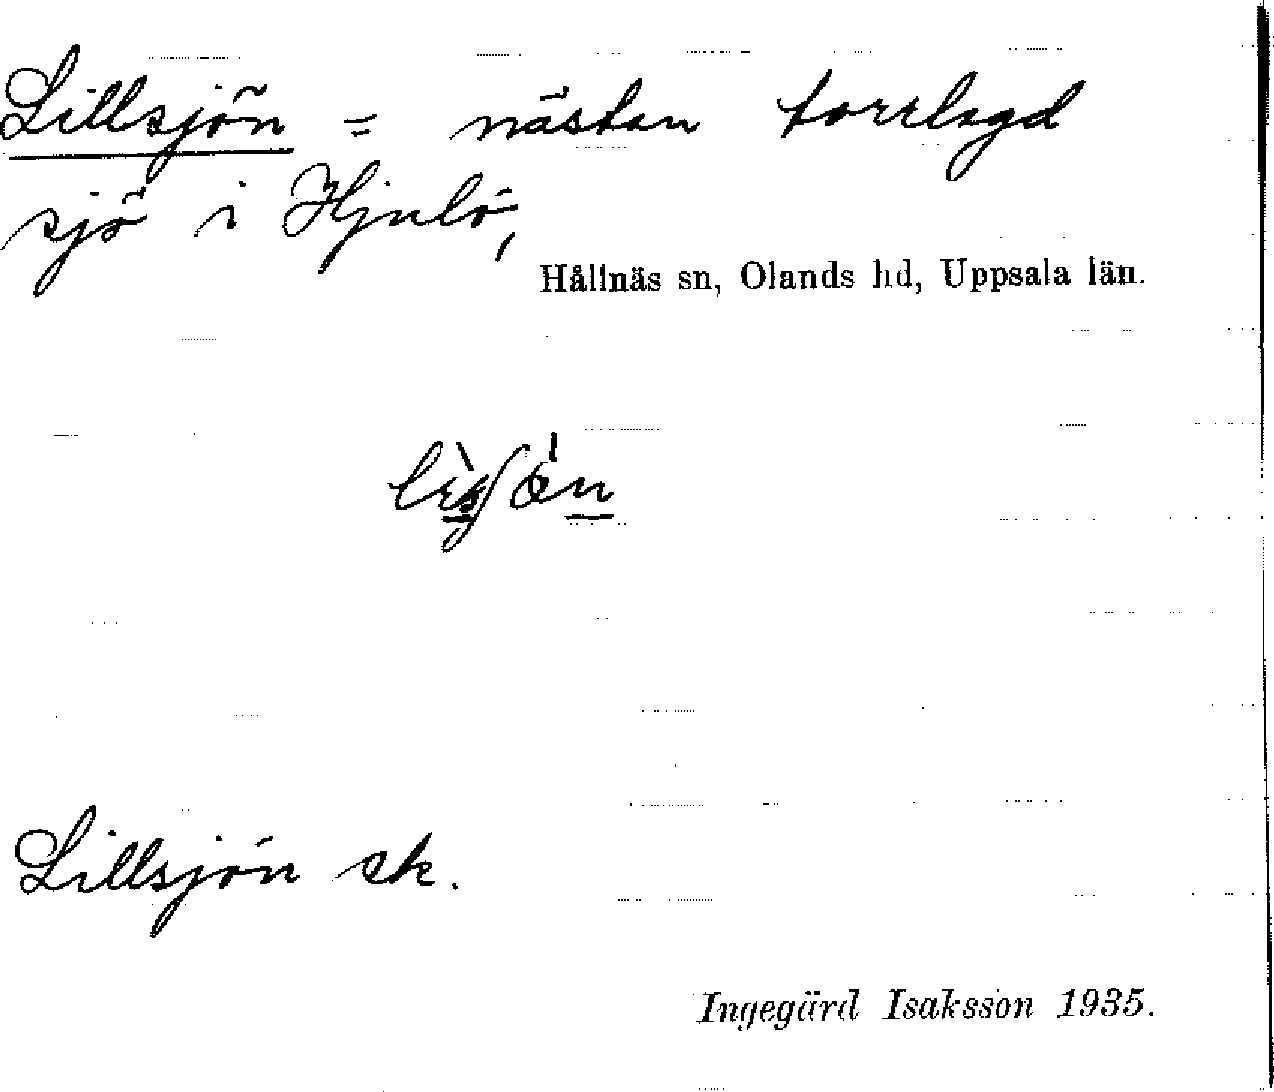 Lillsjön = nästan torrlagd
sjö i Hjulö,
Hållnäs sn, Olands hd, Uppsala län.
Lillsjön ek.
Ingegärd Isaksson 1935.